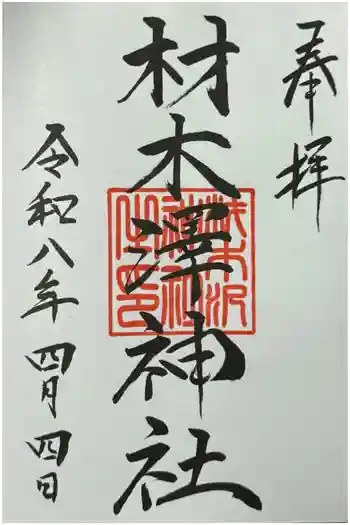 奉拝
材木澤神社
材木沢神社之印
令和八年四月四日